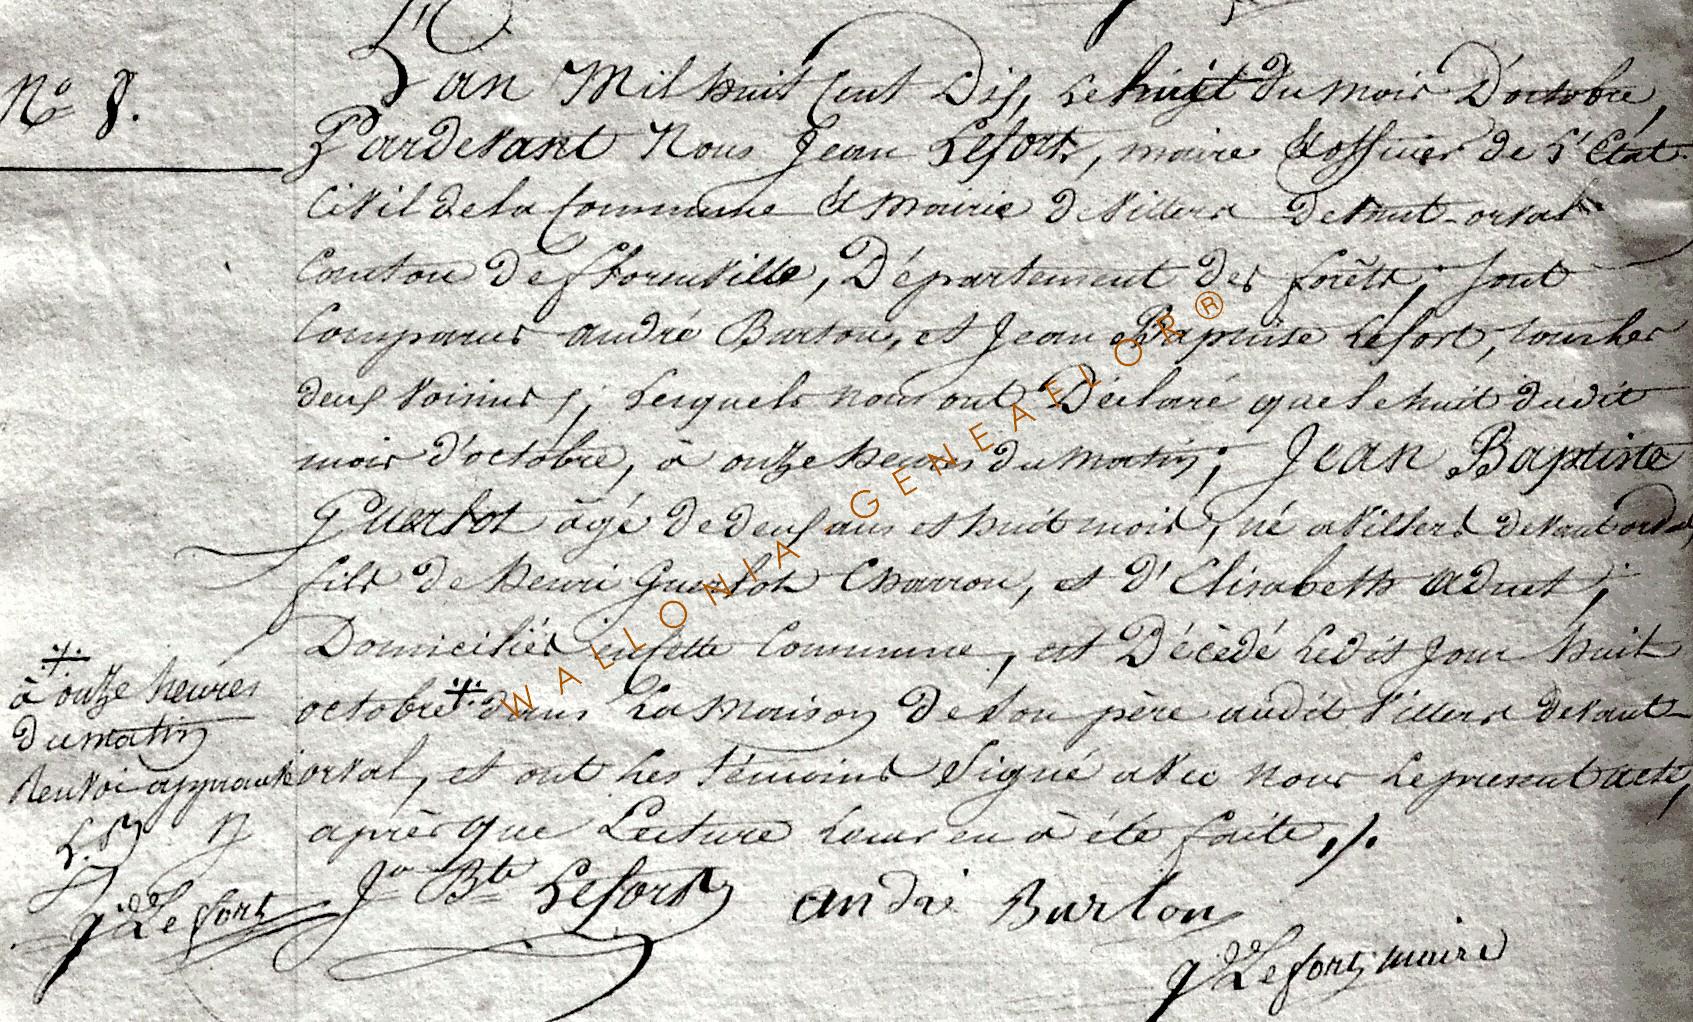 N° 8.
L'an Mil huit Cent Dix, le huit du mois D'octobre,
Pardevant Nous Jean Lefort, maire & officier de L'Etat
Civil de la Commune & mairie de Villers devant-orval
Canton de florenville, Département des forêts, sont
Comparus andré Barton, et Jean Baptiste Lefort,
deux voisins, Lesquels nous ont Déclaré que le huit dudit
mois d'octobre, à onze heures du matin, Jean Baptiste
Guerlot âgé de deux ans et huit mois, né a Villers devant orval,
fils de henri Guerlot Charron, et d'Elisabeth adnet,
Domiciliés en cette Commune, est Décédé Ledit Jour huit
octobre ⁜ dans La Maison de son père audit Villers devant-
orval, et ont Les témoins Signé avec nous Le present acte,
après que Lecture Leur en à été faite ./.
⁜
à onze heures
du matin
Renvoi approuvé
J. Lefort
Jn Bte Lefort
andré Barton
J Lefort maire
WALLONIA GENEAELOR®